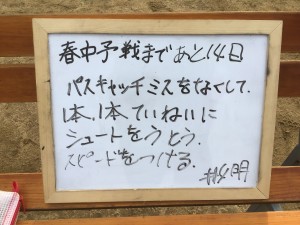 春中予戦まであと14日
パスキャッチミスをなくして.
1本,1本ていねいに
シュートをうとう.
スピードをつける.